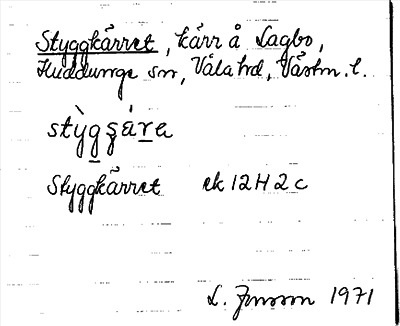 Styggkärret, kärr å Lagbo,
Huddunge sn, Våla hd, Västm. l.
stỳgʂá̈ra
Styggkärret ek 12H2c
L. Jonsson 1971